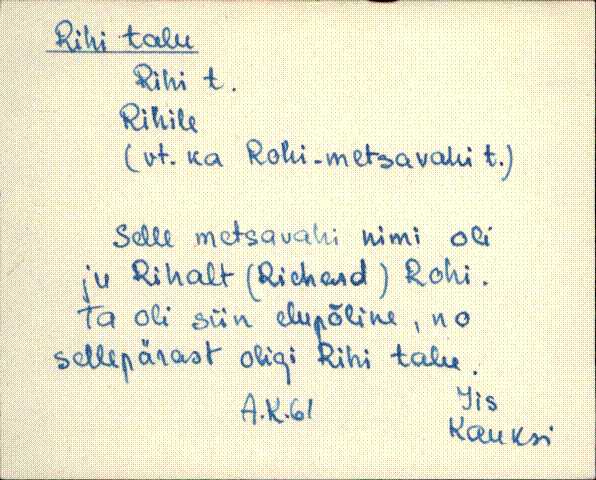 Rihi talu
Rihi t.
Rihile
(vt. ka Rohi-metsavahi t.)
Selle metsavahi nimi oli
ju Rihalt (Richard) Rohi.
Ta oli siin elupõline, no
sellepärast oligi Rihi talu.
A.K. 61
Iis
Kauksi